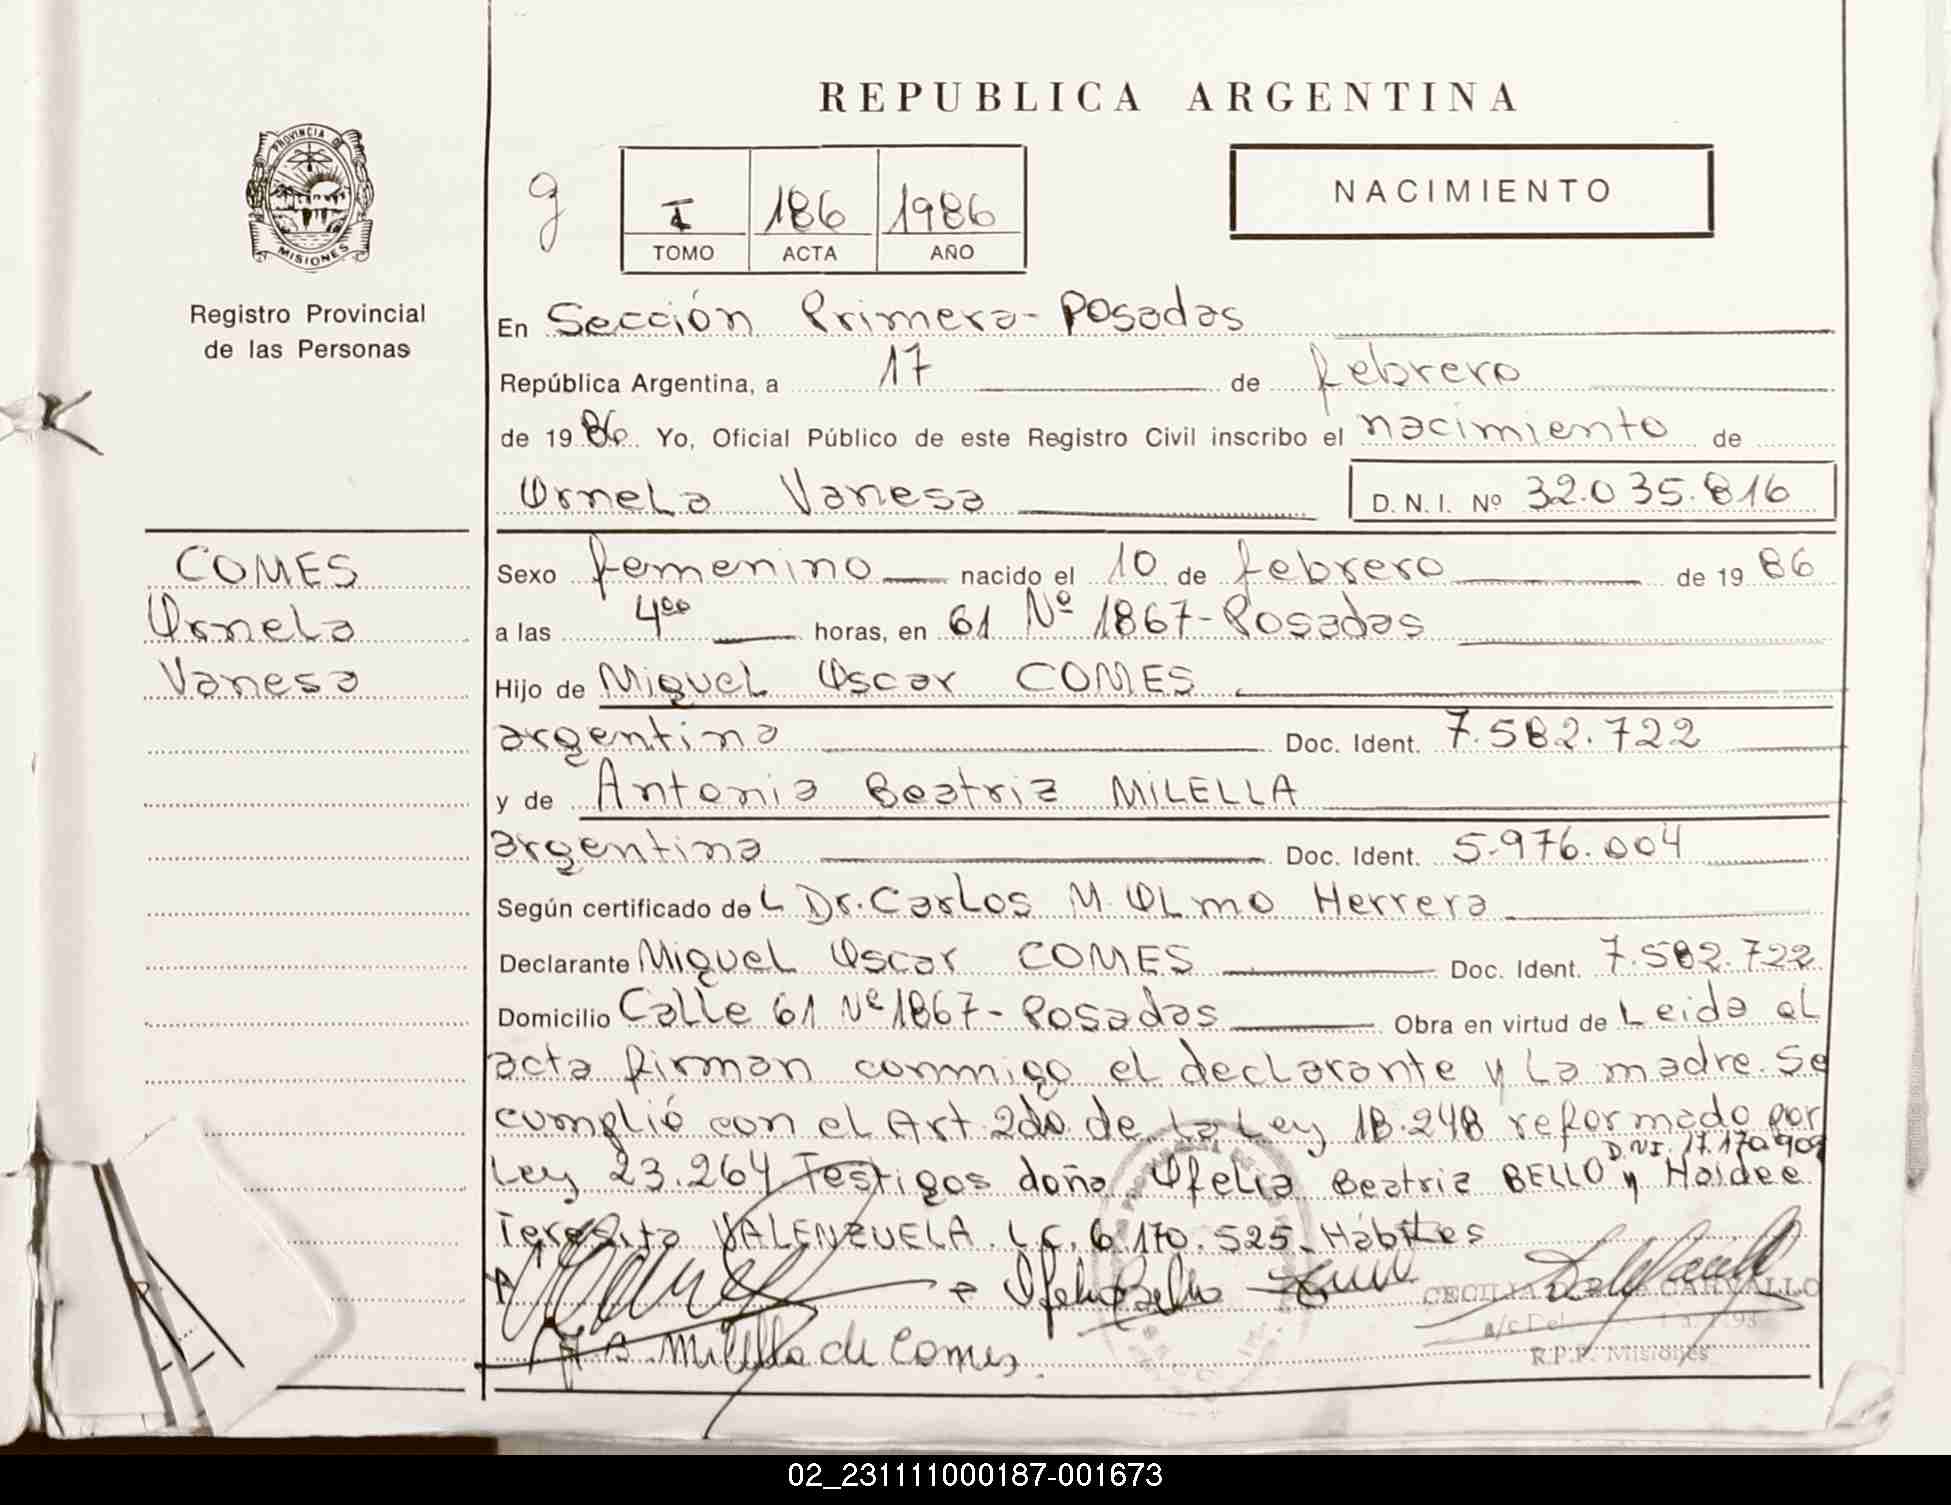 REPUBLICA ARGENTINA
PROVINCIA DE
MISIONES
Registro Provincial
de las Personas
g
I 186 1986
TOMO ACTA AÑO
NACIMIENTO
En Sección Primera - Posadas
República Argentina, a 17 de febrero
de 1986 Yo, Oficial Público de este Registro Civil inscribo el nacimiento de
Ornela Vanesa D.N.I. Nº 32.035.816
COMES
Ornela
Vanesa
Sexo femenino nacido el 10 de febrero de 1986
a las 4⁰⁰ horas, en 61 Nº 1867 - Posadas
Hijo de Miguel Oscar COMES
argentino Doc. Ident. 7.582.722
y de Antonia Beatriz MiLELLA
argentina Doc. Ident. 5.976.004
Según certificado del Dr. Carlos M. Olmo Herrera
Declarante Miguel Oscar COMES Doc. Ident. 7.582.722
Domicilio Calle 61 Nº 1867 - Posadas Obra en virtud de Leida el
acta firman conmigo el declarante y la madre. Se
cumplió con el Art. 2do de la Ley 18.248 reformado por
D.N.I. 17.170.909
Ley 23.264 Testigos doña Ofelia Beatriz BELLO y Haidee
Teresita VALENZUELA. L.C. 6.170.525. Hábiles
Ofelia Bello
CECILIA CARVALLO
a/c Del
R.P.P. Misiones
A B. Milella de Comes.
02_231111000187-001673